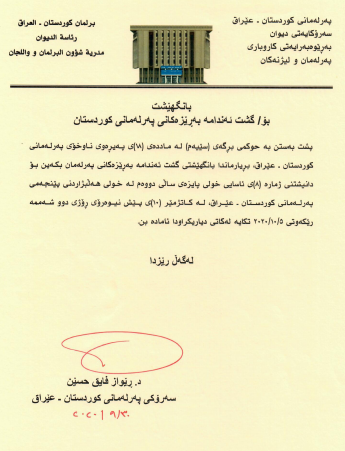 پەرلەمانی کوردستان ـ عێراق
سەرۆکایەتی دیوان
بەڕێوەبەرایەتی کاروباری
پەرلەمان و لیژنەکان
برلمان كوردستان - العراق
رئاسة الديوان
مديرية شؤون البرلمان واللجان
بانگهێشت
بۆ/ گشت ئەندامە بەڕێزەکانی پەرلەمانی کوردستان
پشت بەستن بە حوکمی بڕگەی (سێیەم) لە ماددەی (١٨)ی پەیڕەوی ناوخۆی پەرلەمانی
کوردستان ـ عێراق، بڕیارماندا بانگهێشتی گشت ئەندامە بەڕێزەکانی پەرلەمان بکەین بۆ
دانیشتنی ژمارە (٨)ی ئاسایی خولی پایزەی ساڵی دووەم لە خولی هەڵبژاردنی پێنجەمی
پەرلەمانی کوردستان ـ عێراق، لە کاتژمێر (١٠)ی پێش نیوەڕۆی ڕۆژی دوو شەممە
ڕێکەوتی ٢٠٢٠/١٠/٥ تکایە لەکاتی دیاریکراودا ئامادە بن.
لەگەڵ ڕێزدا
د. ڕێواز فایق حسێن
سەرۆکی پەرلەمانی کوردستان ـ عێراق
٢٠٢٠/٩/٣٠